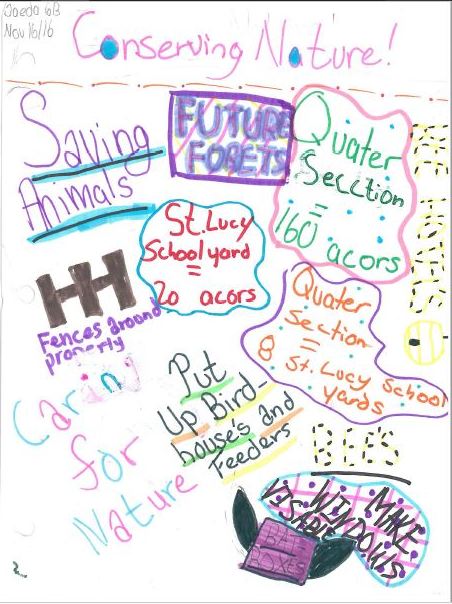 Jaeda 6B
Nov 16/16
Conserving Nature!
Saving
Animals
FUTURE
FORETS
Quater
Section
=
160 acors
BEE HOTELS
St. Lucy
School yard
=
20 acors
Fences around
property
Quater
Section
=
8 St. Lucy School
yards
Caring
for
Nature
Put
Up Bird-
house's and
Feeders
BEE'S
MAKE
WINDOWS
VISABLE
BAT
BOXES